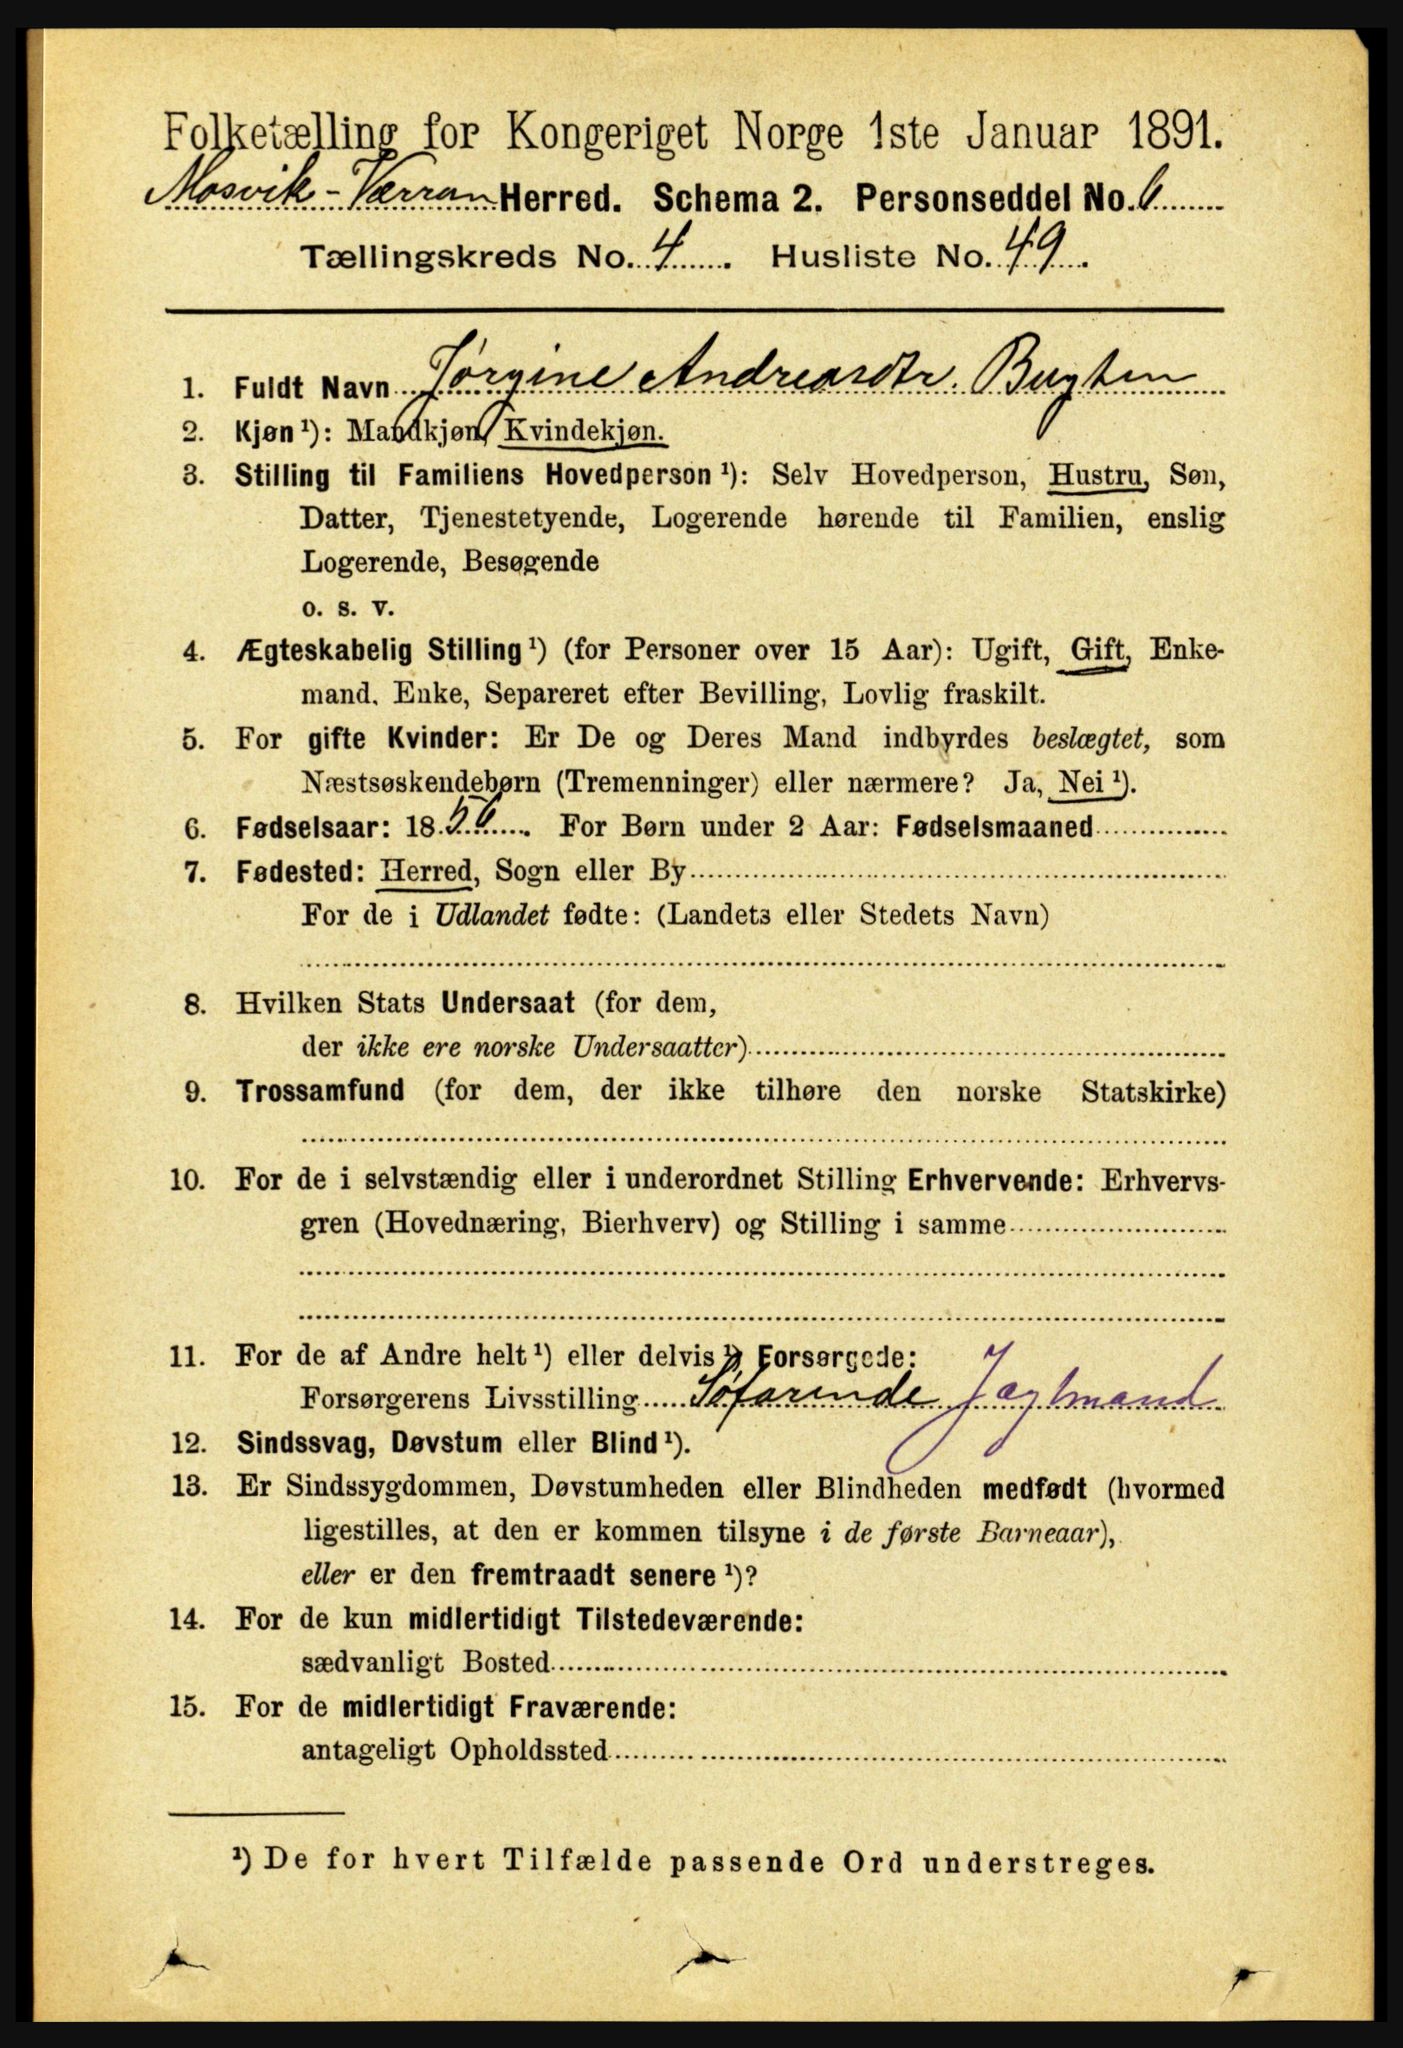 Folketælling for Kongeriget Norge 1ste Januar 1891.
Mosvik-Værran Herred. Schema 2. Personseddel No. 6
Tællingskreds No. 4. Husliste No. 49.
1. Fuldt Navn Jørgine Andreasdtr. Bugten
2. Kjøn ¹): Mandkjøn, Kvindekjøn.
3. Stilling til Familiens Hovedperson ¹): Selv Hovedperson, Hustru, Søn,
Datter, Tjenestetyende, Logerende hørende til Familien, enslig
Logerende, Besøgende
o. s. v.
4. Ægteskabelig Stilling ¹) (for Personer over 15 Aar): Ugift, Gift, Enke-
mand, Enke, Separeret efter Bevilling, Lovlig fraskilt.
5. For gifte Kvinder: Er De og Deres Mand indbyrdes beslægtet, som
Næstsøskendebørn (Tremenninger) eller nærmere? Ja, Nei ¹).
6. Fødselsaar: 1856. For Børn under 2 Aar: Fødselsmaaned
7. Fødested: Herred, Sogn eller By
For de i Udlandet fødte: (Landets eller Stedets Navn)
8. Hvilken Stats Undersaat (for dem,
der ikke ere norske Undersaatter)
9. Trossamfund (for dem, der ikke tilhøre den norske Statskirke)
10. For de i selvstændig eller i underordnet Stilling Erhvervende: Erhvervs-
gren (Hovednæring, Bierhverv) og Stilling i samme
11. For de af Andre helt ¹) eller delvis ¹) Forsørgede:
Forsørgerens Livsstilling Søfarende Jagtmand
12. Sindssvag, Døvstum eller Blind ¹).
13. Er Sindssygdommen, Døvstumheden eller Blindheden medfødt (hvormed
ligestilles, at den er kommen tilsyne i de første Barneaar),
eller er den fremtraadt senere ¹)?
14. For de kun midlertidigt Tilstedeværende:
sædvanligt Bosted
15. For de midlertidigt Fraværende:
antageligt Opholdssted
¹) De for hvert Tilfælde passende Ord understreges.